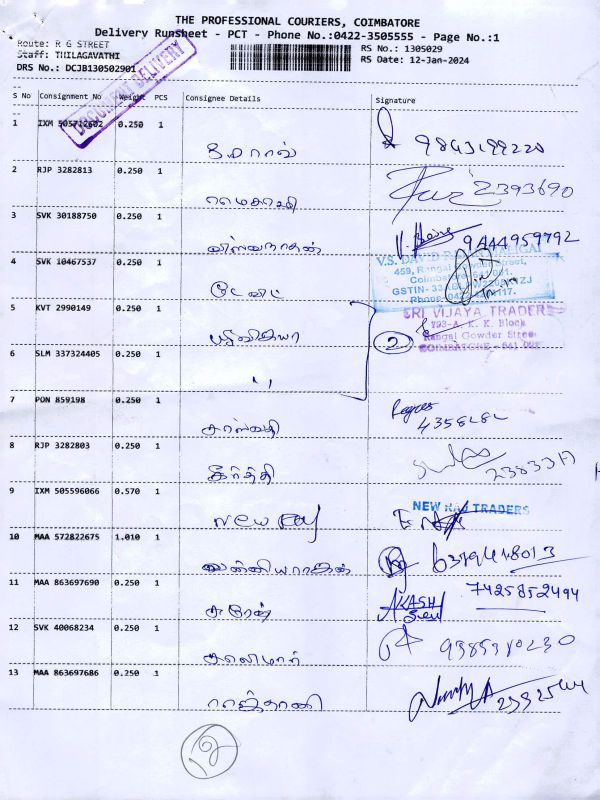 THE PROFESSIONAL COURIERS, COIMBATORE
Delivery RunSheet - PCT - Phone No.:0422-3505555 - Page No.:1
Route: R G STREET
RS No.: 1305029
Staff: THILAGAVATHI
RS Date: 12-Jan-2024
DRS No.: DCJB130502901
DELIVERY
S No Consignment No Weight PCS Consignee Details Signature
1 IXM 505712602 0.250 1
9843199220
2 RJP 3282813 0.250 1
2393690
3 SVK 30188750 0.250 1 விஸ்வநாதன்
9444959792
4 SVK 10467537 0.250 1 டேவிட்
V.S. DAVID
459, Rangai
GSTIN- 33
Phone:
5 KVT 2990149 0.250 1
SRI VIJAYA TRADER
793-A, K. K. Block
Rangai Gowder Street
COIMBATORE - 641 001
2
6 SLM 337324405 0.250 1
7 PON 859198 0.250 1
4358282
8 RJP 3282803 0.250 1 கீர்த்தி
9 IXM 505596066 0.570 1 New Raj
NEW RAJ TRADERS
10 MAA 572822675 1.010 1
6379418013
11 MAA 863697690 0.250 1 சுரேஷ்
AKASH
7425852494
12 SVK 40068234 0.250 1
9385310230
13 MAA 863697686 0.250 1 ராஜ்தானி